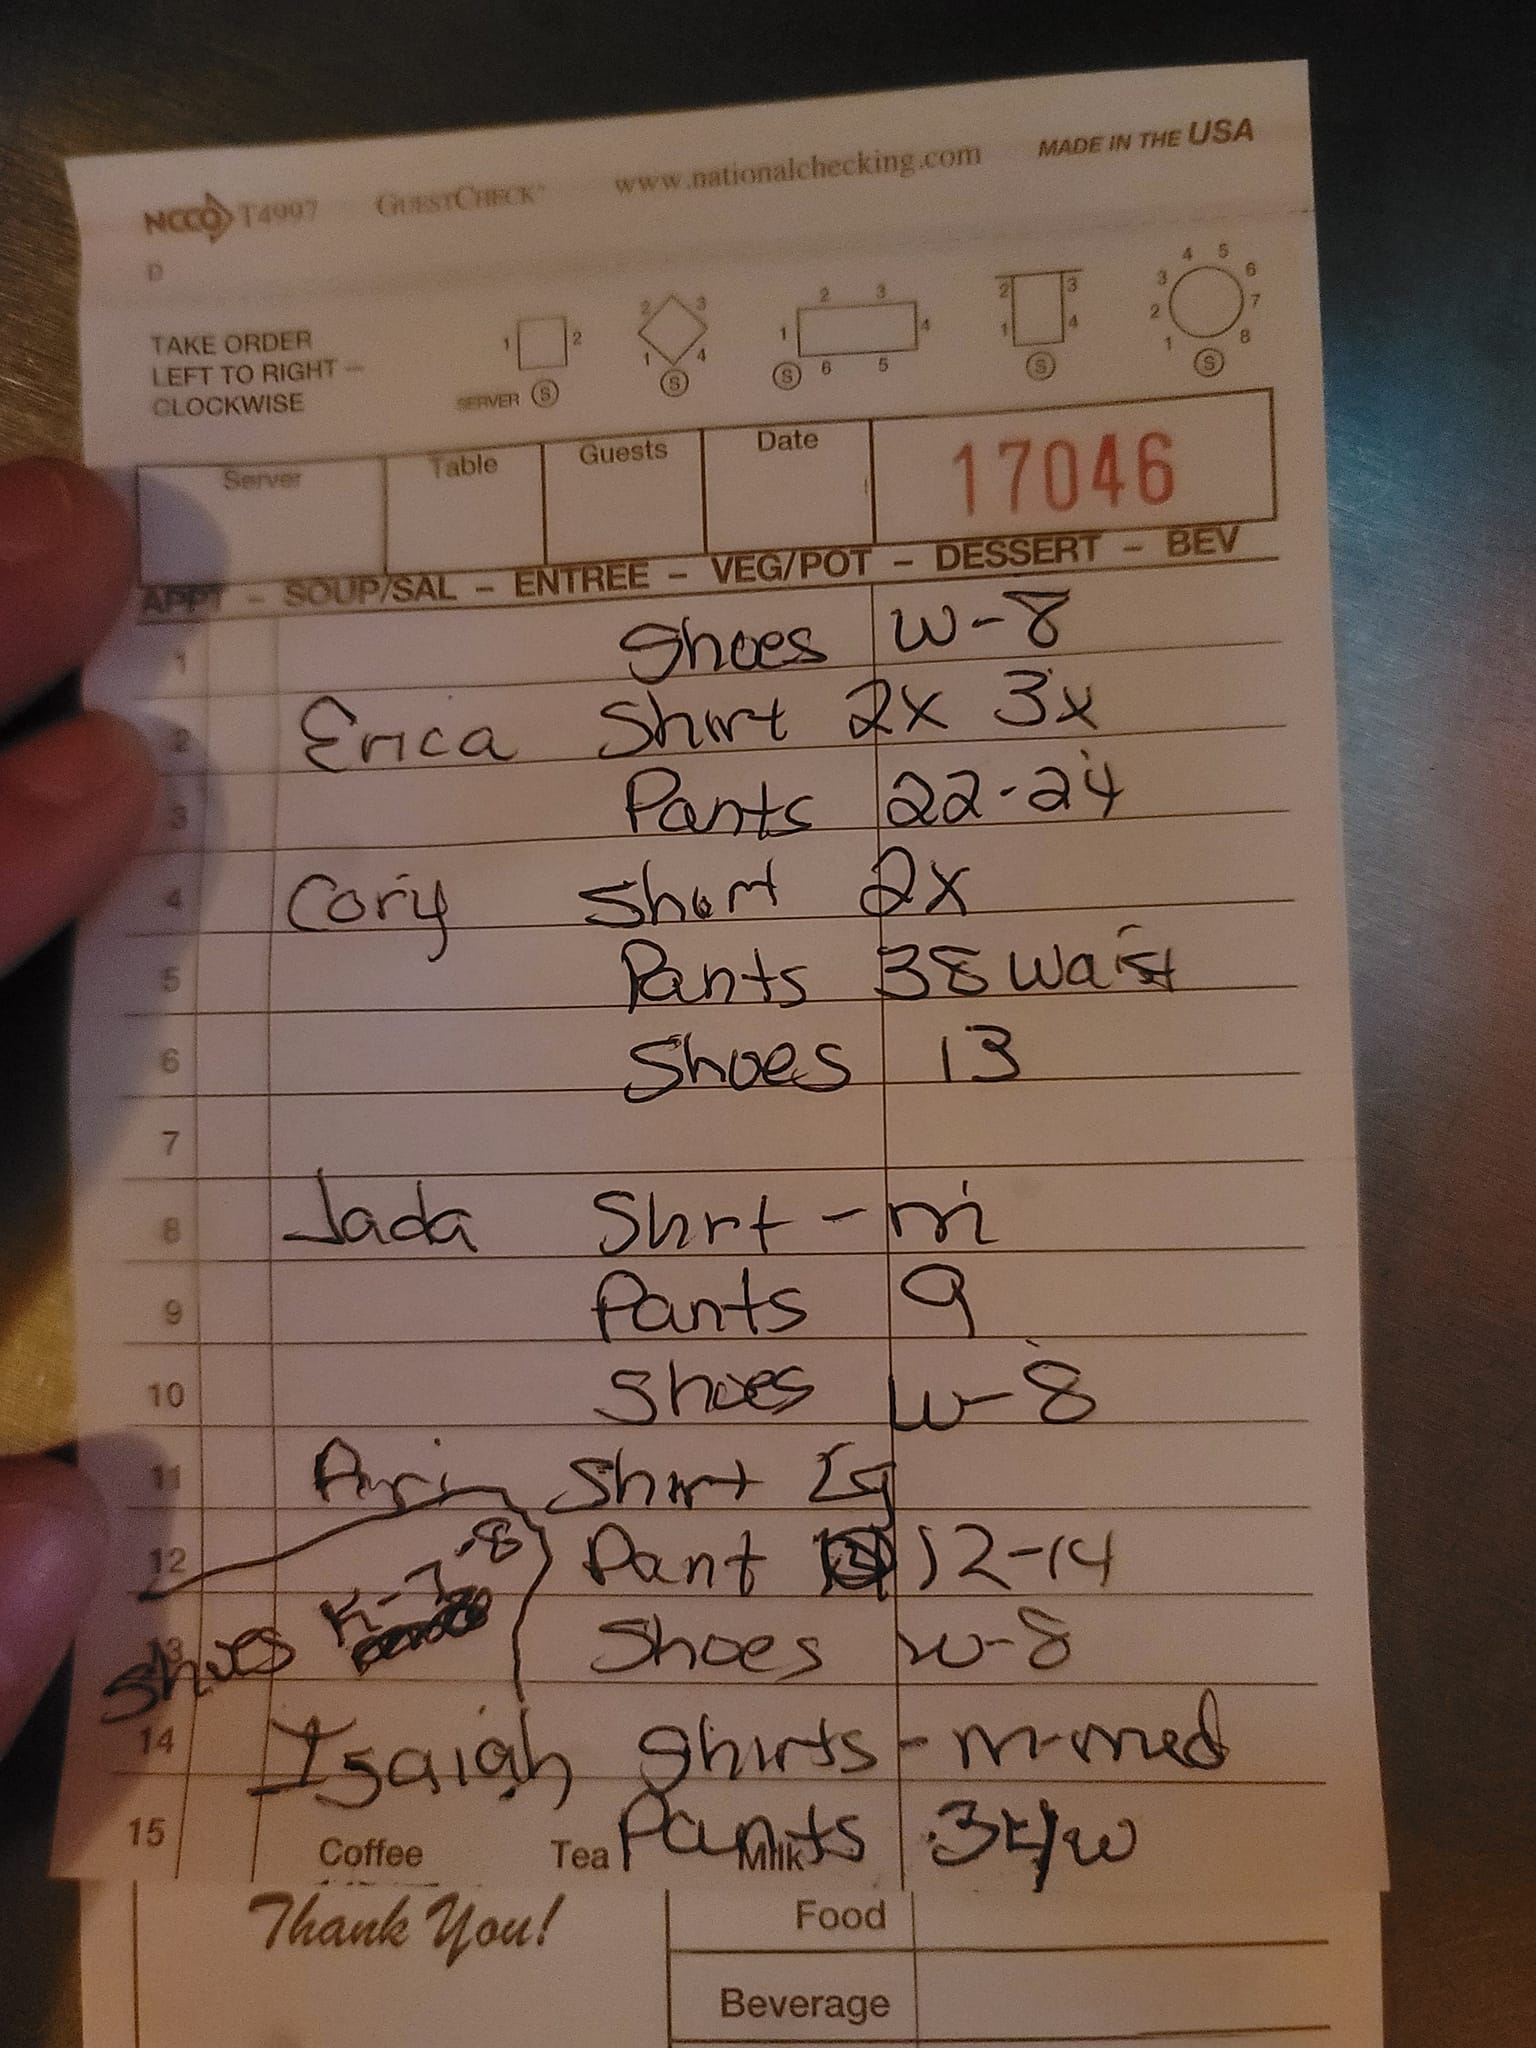 NCCO T4997 GUESTCHECK www.nationalchecking.com MADE IN THE USA
D
TAKE ORDER
LEFT TO RIGHT –
CLOCKWISE
1 2
2 3 1 4
2 3 1 4 6 5
2 3 1 4
4 5 3 6 2 7 1 8
SERVER S S S S S
Server Table Guests Date 17046
APPT – SOUP/SAL – ENTREE – VEG/POT – DESSERT – BEV
1 Shoes W-8
2 Erica Shirt 2x 3x
3 Pants 22-24
4 Cory Shirt 2x
5 Pants 38 Waist
6 Shoes 13
7
8 Jada Shrt - m
9 Pants 9
10 Shoes W-8
11 Ari Shirt Lg
12 Pant 12-14
13 Shoes W-8
Shoes K-7-8
14 Isaiah Shirts - m-med
15 Pants 34/w
Coffee Tea Milk
Thank You!
Food
Beverage